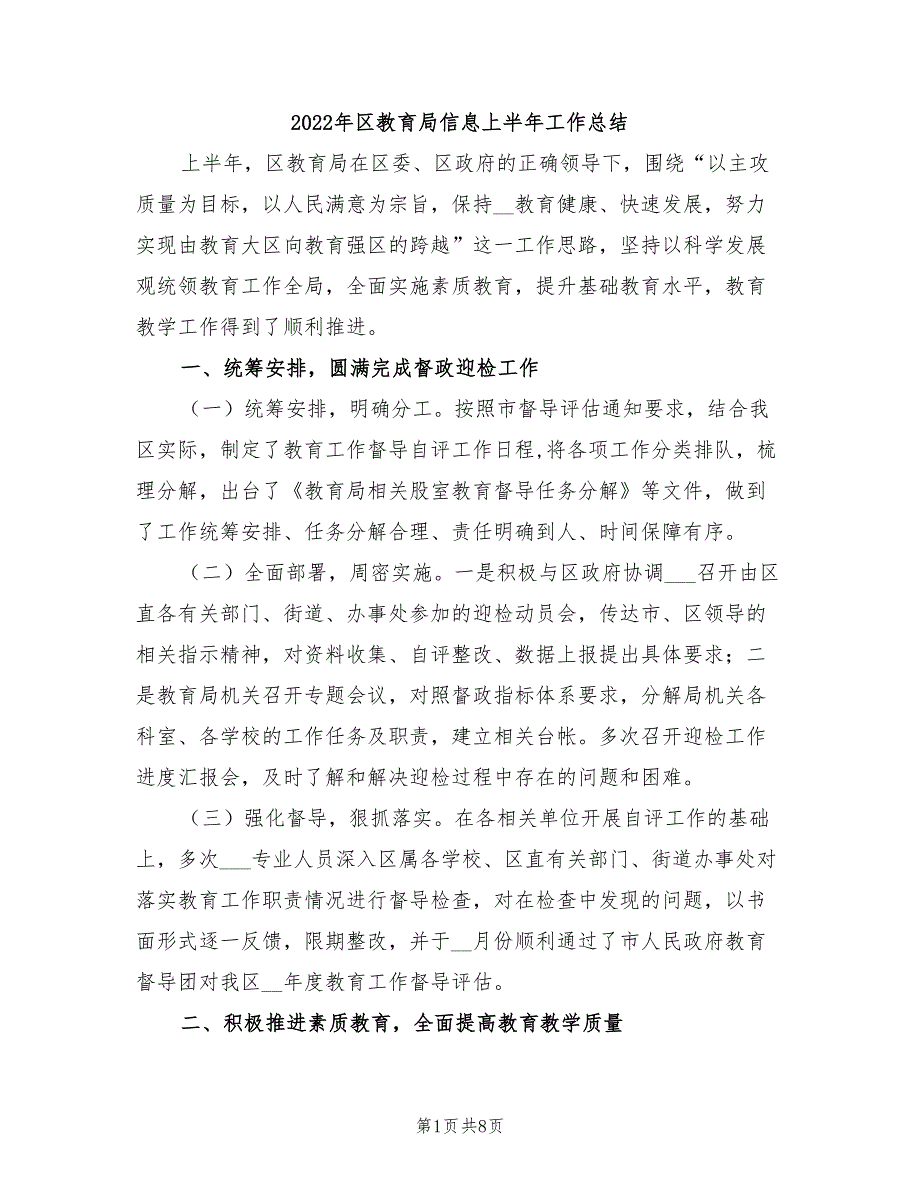 2022年区教育局信息上半年工作总结
上半年，区教育局在区委、区政府的正确领导下，围绕“以主攻
质量为目标，以人民满意为宗旨，保持__教育健康、快速发展，努力
实现由教育大区向教育强区的跨越”这一工作思路，坚持以科学发展
观统领教育工作全局，全面实施素质教育，提升基础教育水平，教育
教学工作得到了顺利推进。
一、统筹安排，圆满完成督政迎检工作
（一）统筹安排，明确分工。按照市督导评估通知要求，结合我
区实际，制定了教育工作督导自评工作日程,将各项工作分类排队，梳
理分解，出台了《教育局相关股室教育督导任务分解》等文件，做到
了工作统筹安排、任务分解合理、责任明确到人、时间保障有序。
（二）全面部署，周密实施。一是积极与区政府协调___召开由区
直各有关部门、街道、办事处参加的迎检动员会，传达市、区领导的
相关指示精神，对资料收集、自评整改、数据上报提出具体要求；二
是教育局机关召开专题会议，对照督政指标体系要求，分解局机关各
科室、各学校的工作任务及职责，建立相关台帐。多次召开迎检工作
进度汇报会，及时了解和解决迎检过程中存在的问题和困难。
（三）强化督导，狠抓落实。在各相关单位开展自评工作的基础
上，多次___专业人员深入区属各学校、区直有关部门、街道办事处对
落实教育工作职责情况进行督导检查，对在检查中发现的问题，以书
面形式逐一反馈，限期整改，并于__月份顺利通过了市人民政府教育
督导团对我区__年度教育工作督导评估。
二、积极推进素质教育，全面提高教育教学质量
第1页 共8页